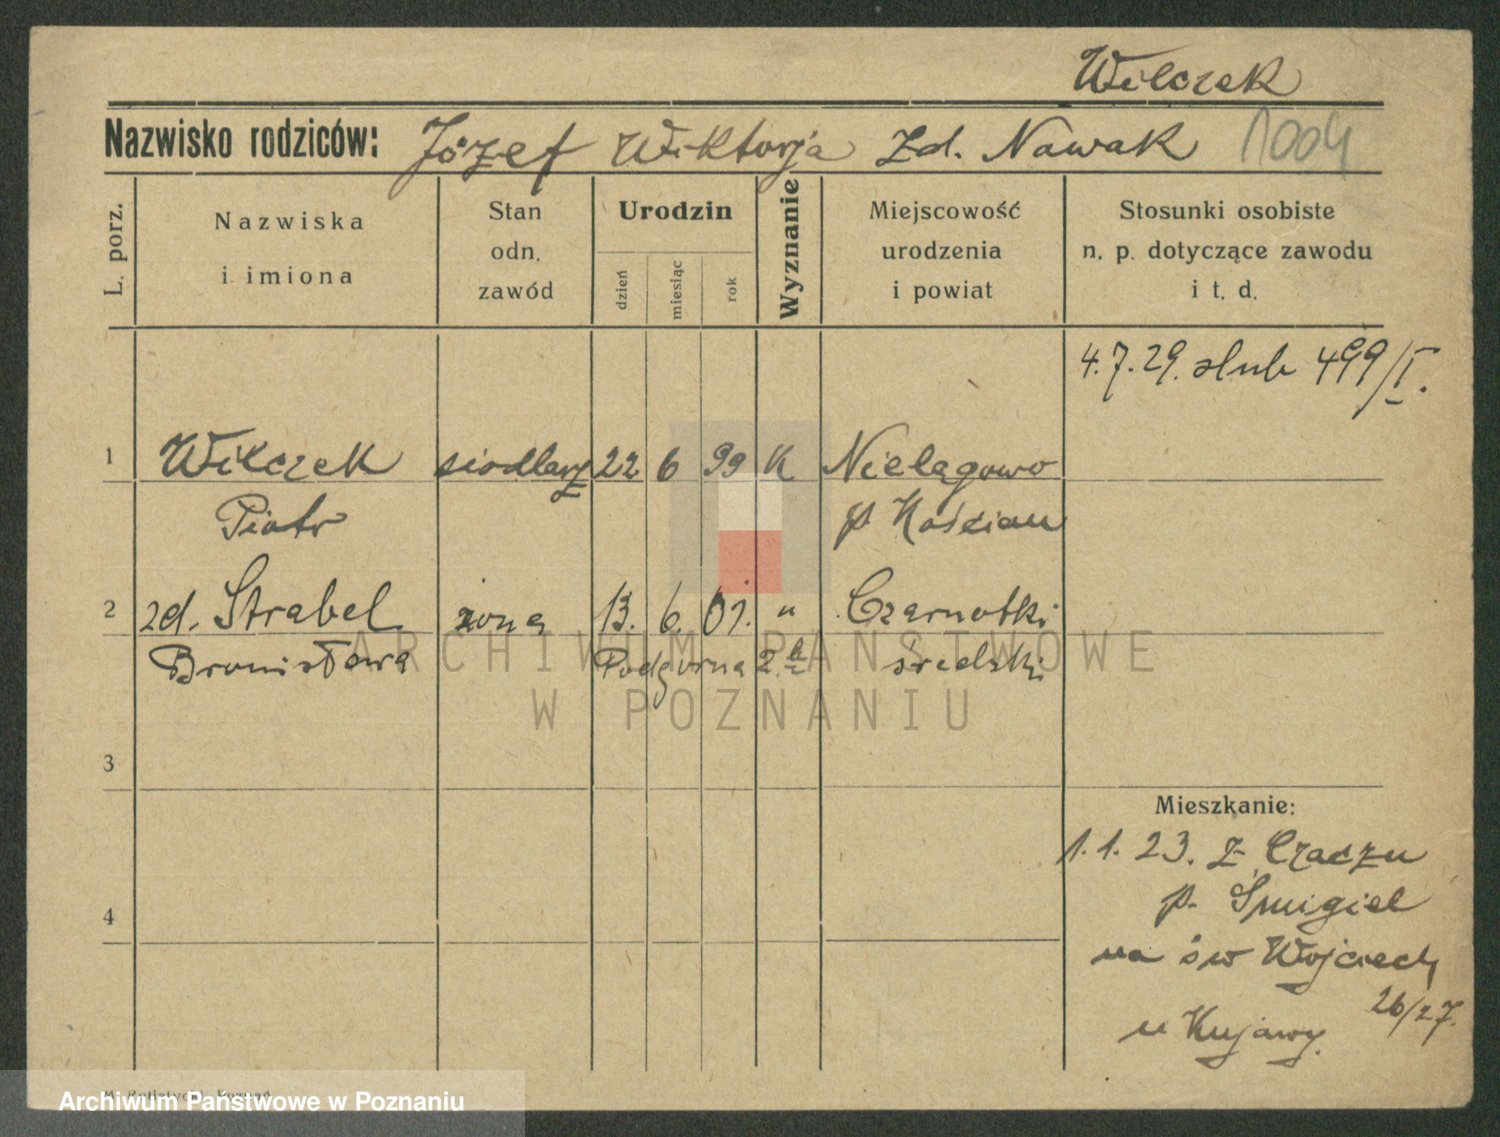 Wilczek
Nazwisko rodziców: Józef Wiktorja zd. Nowak 1004
L. porz.
Nazwiska
i imiona
Stan
odn.
zawód
Urodzin
dzień
miesiąc
rok
Wyznanie
Miejscowość
urodzenia
i powiat
Stosunki osobiste
n. p. dotyczące zawodu
i t. d.
4. 7. 29. ślub 499/I.
1 Wilczek siodlarz 22 6 99 K Nielągowo
Piotr p Kościan
2 zd. Strabel żona 13. 6. 01. " Czarnotki
Bronisława Podgórna 2a średzki
3
Mieszkanie:
1. 1. 23. z Czaczu
p. Śmigiel
4
na św Wojciech
26/27.
u Kujawy.
ARCHIWUM PAŃSTWOWE
W POZNANIU
Archiwum Państwowe w Poznaniu